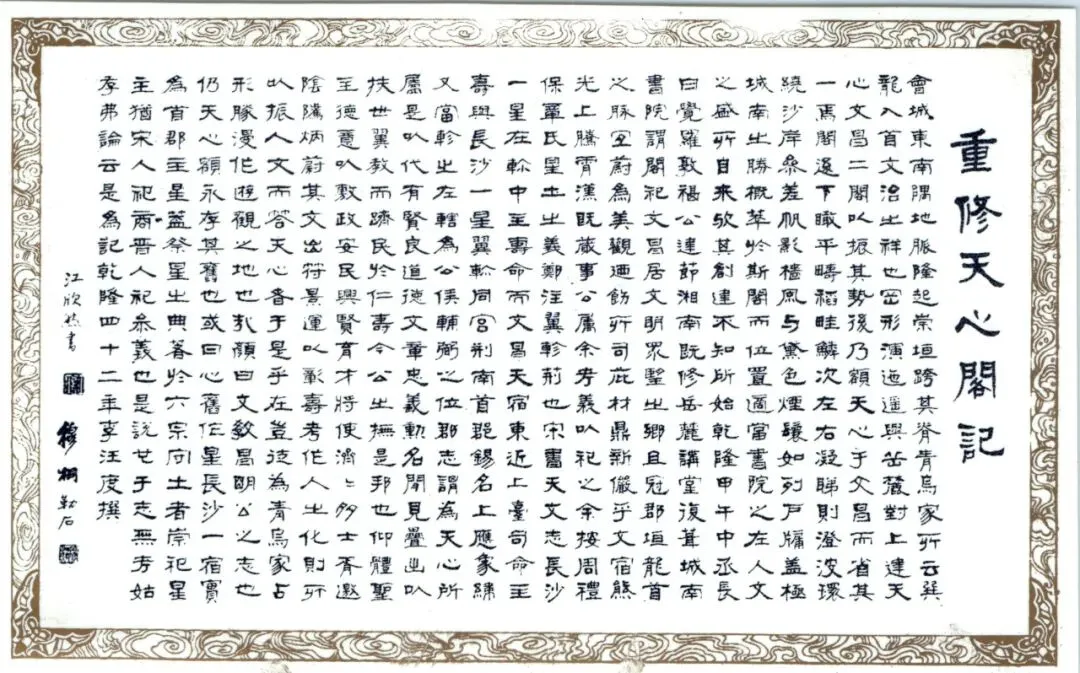 重修天心閣記
會城東南隅地脈隆起崇垣跨其脊青烏家所云巽
龍入首文治之祥也岡形演迤遥與岳麓對上建天
心文昌二閣以振其勢後乃額天心于文昌而省其
一焉閣遠下瞰平疇稻畦鱗次左右凝睇則澄波環
繞沙岸參差帆影檣風与黛色煙鬟如列戶牖盖極
城南之勝概萃於斯閣而位置適當書院之左人文
之盛所自来欤其創建不知所始乾隆甲午中丞長
白覺羅敦福公建節湘南既修岳麓講堂復葺城南
書院謂閣祀文昌居文明眾墅之鄉且冠郡垣龍首
之脉宜蔚為美觀迺飭所司庇材鼎新儼乎文宿熊
光上騰霄漢既蕆事公属余考義以祀之余按周禮
保章氏星土之義鄭注翼軫荊也宋書天文志長沙
一星在軫中主壽命而文昌天宿東近上臺司命主
壽與長沙一星翼軫同宫荆南首郡錫名上應象緯
又當軫之左轄為公侯輔弼之位郡志謂為天心所
屬是以代有賢良道德文章忠義勳名聞見疊出以
扶世翼教而躋民於仁壽今公之撫是邦也仰體聖
主德意以敷政安民興賢育才將使濟〻多士胥邀
陰騭炳蔚其文出符景運以彰壽考作人之化則所
以振人文而答天心者于是乎在豈徒為青烏家占
形勝漫作遊觀之地也哉顏曰文教昌明公之志也
仍天心額永存其舊也或曰心舊作星長沙一宿實
為首郡主星盖祭星之典著於六宗司土者崇祀星
主猶宋人祀商晋人祀參義也是說也于志無考姑
存弗論云是為記乾隆四十二年李汪度撰
江欣然書
穆桐勒石